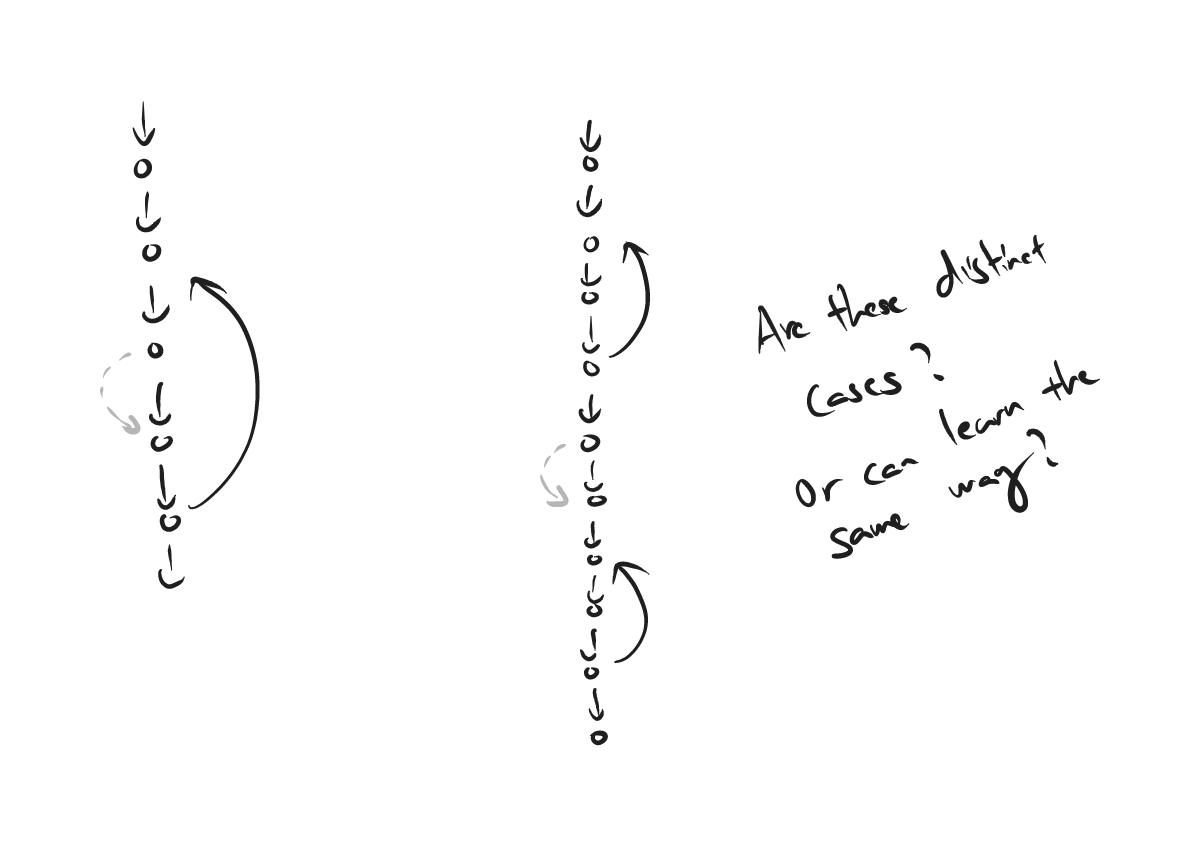 Are these distinct
cases?
Or can learn the
same way?